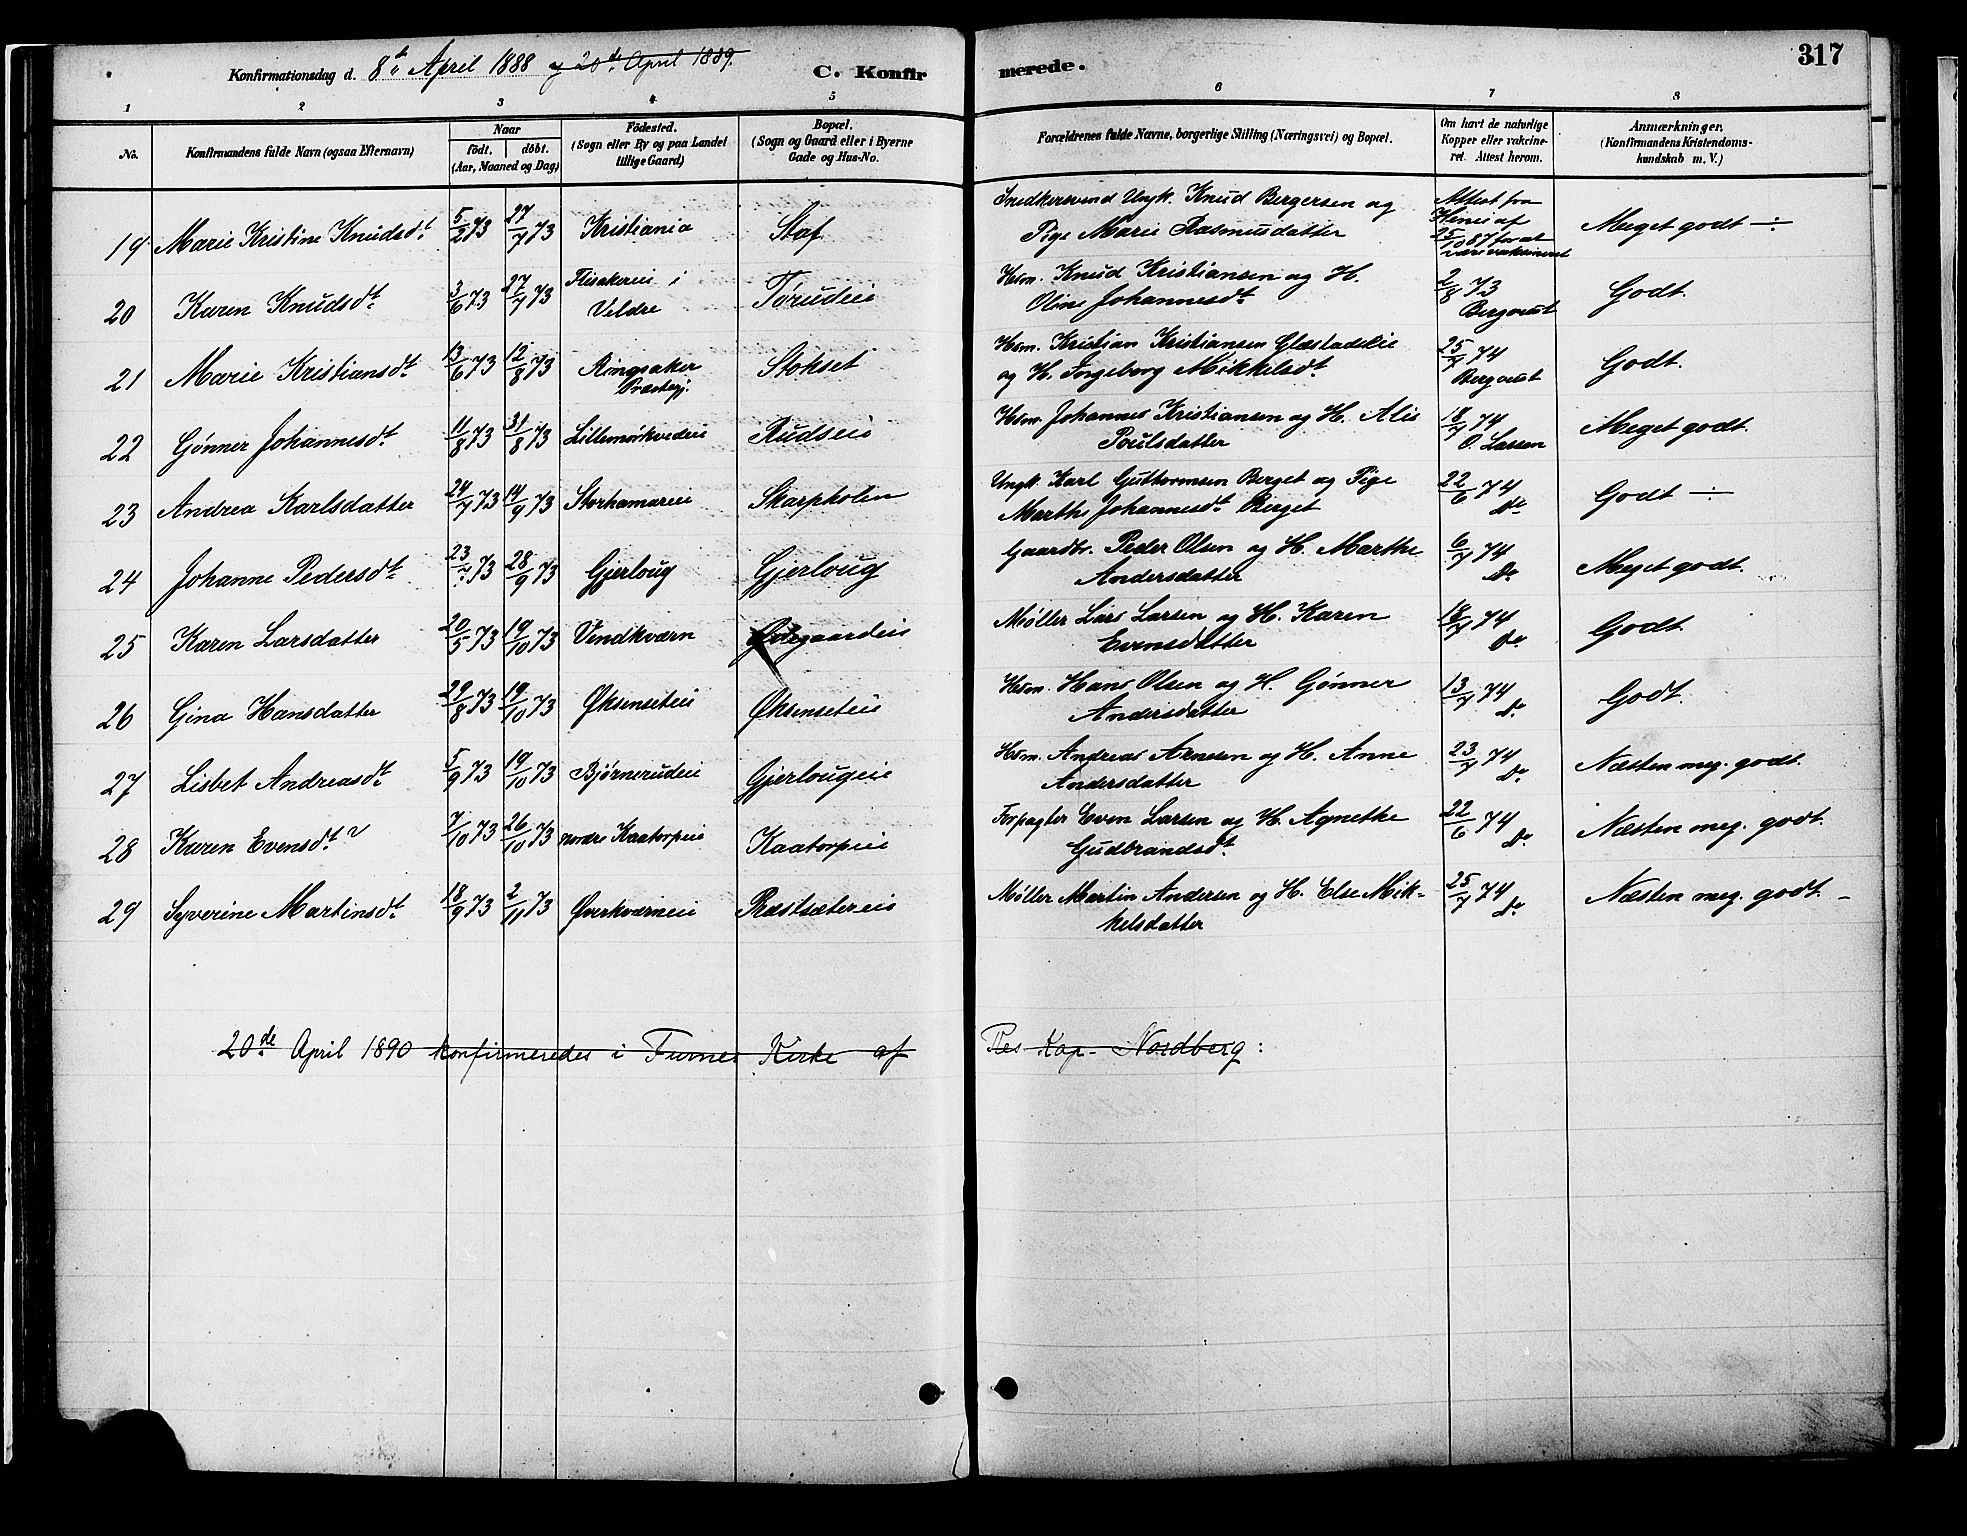 Konfirmationsdag d. 8de April 1888 og 20de April 1889.
C. Konfirmerede.
317
1 2 3 4 5 6 7 8
No.
Konfirmandens fulde Navn (ogsaa Efternavn)
Naar
født. døbt.
(Aar, Maaned og Dag)
Fødested.
(Sogn eller By og paa Landet
tillige Gaard)
Bopæl.
(Sogn og Gaard eller i Byerne
Gade og Hus-No.
Forældrenes fulde Navne, borgerlige Stilling (Næringsvei) og Bopæl.
Om havt de naturlige
Kopper eller vakcine-
ret. Attest herom.
Anmærkninger.
(Konfirmandens Kristendoms-
kundskab m. V.)
19 Marie Kristine Knudsdt. 5/2 73 27/7 73 Kristiania Staf
Snedkersvend Ungk. Knud Bergersen og
Pige Marie Rasmusdatter
Attest fra
af
25/10 87 for at
være vakcineret
Meget godt ÷
20 Karen Knudsdt 3/6 73 27/7 73 Flisakereie i
Veldre
Torudeie
Hsm. Knud Kristiansen og H.
Oline Johannesdt
2/8 73
Bergqvist
Godt.
21 Marie Kristiansdt. 13/6 73 12/8 73 Ringsaker
Præstegj.
Stokset
Hsm. Kristian Kristiansen Glæstadeie
og H. Ingeborg Mikkelsdt.
25/7 74
Bergqvist
Godt.
22 Gønner Johannesdt. 11/8 73 31/8 73 Lillemørkvedeie Rudseie
Hsm. Johannes Kristiansen og H. Alis
Poulsdatter
18/7 74
O. Larsen
Meget godt.
23 Andrea Karlsdatter 24/7 73 14/9 73 Storhamareie Skarpholen
Ungk. Karl Guttormsen Berget og Pige
Marthe Johannesdt. Berget
22/6 74
Do
Godt ÷
24 Johanne Pedersdt. 23/7 73 28/9 73 Gjerloug Gjerloug
Gaardbr. Peder Olsen og H. Marthe
Andersdatter
6/7 74
Do
Meget godt.
25 Karen Larsdatter 20/5 73 19/10 73 Vindkværn Øvregaardeie
Møller Lars Larsen og H. Karen
Evensdatter
18/7 74
Do
Godt.
26 Gina Hansdatter 29/8 73 19/10 73 Øksenseteie Øksenseteie
Hsm. Hans Olsen og H. Gønner
Andersdatter
13/7 74
Do
Godt.
27 Lisbet Andreasdt. 5/9 73 19/10 73 Bjørnerudeie Gjerlougeie
Hsm. Andreas Arnesen og H. Anne
Andersdatter
23/7 74
Do
Næsten meg. godt.
28 Karen Evensdt. 7/10 73 26/10 73 nordre Kaatorpeie Kaatorpeie
Forpagter Even Larsen og H. Agnethe
Gudbrandsdt.
22/6 74
Do
Næsten meg. godt.
29 Syverine Martinsdt. 18/9 73 2/11 73 Qverkværneie Ræstsætereie
Møller Martin Andersen og H. Else Mik-
kelsdatter
25/7 74
Do
Næsten meg. godt. –
20de April 1890 konfirmeredes i Furnes Kirke af Res. Kap. Nordberg: